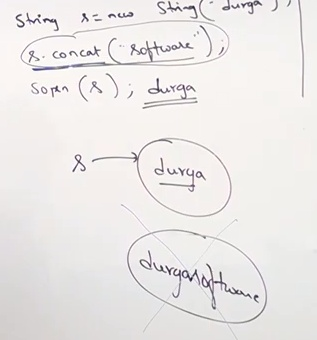 String s = new String("durga");
s.concat("software");
sopln(s); durga
s
durga
durgasoftware